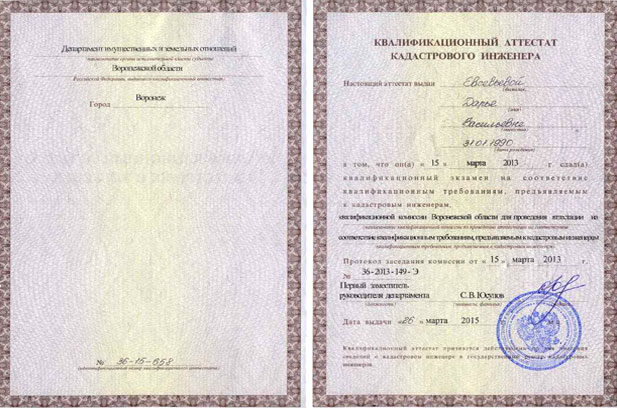 Департамент имущественных и земельных отношений
наименование органа исполнительной власти субъекта
Воронежской области
Российской Федерации, выдавшего квалификационный аттестат
Город Воронеж
№ 36-15-658
(идентификационный номер квалификационного аттестата)
КВАЛИФИКАЦИОННЫЙ АТТЕСТАТ
КАДАСТРОВОГО ИНЖЕНЕРА
Настоящий аттестат выдан
(фамилия)
Дарье
(имя)
Васильевне
(отчество)
31.01.1990
(дата рождения)
в том, что он(а) « 15 » марта 2013 г сдал(а)
квалификационный экзамен на соответствие
квалификационным требованиям, предъявляемым
к кадастровым инженерам,
квалификационной комиссии Воронежской области для проведения аттестации на
соответствие квалификационным требованиям, предъявляемым к кадастровым инженерам
Протокол заседания комиссии от « 15 » марта 2013 г.
№ 36-2013-149-Э
Первый заместитель
руководителя департамента С.В. Юсупов
(должность) (инициалы, фамилия)
Дата выдачи «26» марта 2015
Квалификационный аттестат признается
сведений о кадастровом инженере в государственный реестр кадастровых
инженеров.